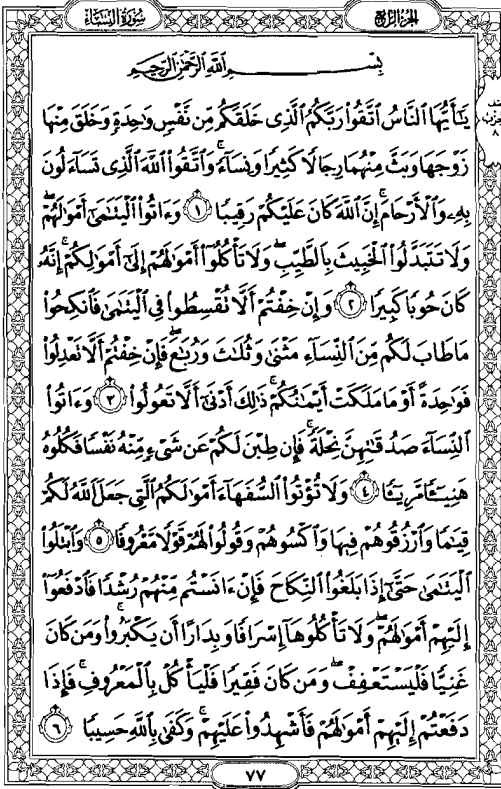 الجزء الرابع
سورة النساء
بِسْمِ اللَّهِ الرَّحْمَٰنِ الرَّحِيمِ
يَٰٓأَيُّهَا ٱلنَّاسُ ٱتَّقُوا۟ رَبَّكُمُ ٱلَّذِى خَلَقَكُم مِّن نَّفْسٍ وَٰحِدَةٍ وَخَلَقَ مِنْهَا
زَوْجَهَا وَبَثَّ مِنْهُمَا رِجَالًا كَثِيرًا وَنِسَآءً ۚ وَٱتَّقُوا۟ ٱللَّهَ ٱلَّذِى تَسَآءَلُونَ
بِهِۦ وَٱلْأَرْحَامَ ۚ إِنَّ ٱللَّهَ كَانَ عَلَيْكُمْ رَقِيبًا ١ وَءَاتُوا۟ ٱلْيَتَٰمَىٰٓ أَمْوَٰلَهُمْ ۖ
وَلَا تَتَبَدَّلُوا۟ ٱلْخَبِيثَ بِٱلطَّيِّبِ ۖ وَلَا تَأْكُلُوٓا۟ أَمْوَٰلَهُمْ إِلَىٰٓ أَمْوَٰلِكُمْ ۚ إِنَّهُۥ
كَانَ حُوبًا كَبِيرًا ٢ وَإِنْ خِفْتُمْ أَلَّا تُقْسِطُوا۟ فِى ٱلْيَتَٰمَىٰ فَٱنكِحُوا۟
مَا طَابَ لَكُم مِّنَ ٱلنِّسَآءِ مَثْنَىٰ وَثُلَٰثَ وَرُبَٰعَ ۖ فَإِنْ خِفْتُمْ أَلَّا تَعْدِلُوا۟
فَوَٰحِدَةً أَوْ مَا مَلَكَتْ أَيْمَٰنُكُمْ ۚ ذَٰلِكَ أَدْنَىٰٓ أَلَّا تَعُولُوا۟ ٣ وَءَاتُوا۟
ٱلنِّسَآءَ صَدُقَٰتِهِنَّ نِحْلَةً ۚ فَإِن طِبْنَ لَكُمْ عَن شَىْءٍ مِّنْهُ نَفْسًا فَكُلُوهُ
هَنِيٓـًٔا مَّرِيٓـًٔا ٤ وَلَا تُؤْتُوا۟ ٱلسُّفَهَآءَ أَمْوَٰلَكُمُ ٱلَّتِى جَعَلَ ٱللَّهُ لَكُمْ
قِيَٰمًا وَٱرْزُقُوهُمْ فِيهَا وَٱكْسُوهُمْ وَقُولُوا۟ لَهُمْ قَوْلًا مَّعْرُوفًا ٥ وَٱبْتَلُوا۟
ٱلْيَتَٰمَىٰ حَتَّىٰٓ إِذَا بَلَغُوا۟ ٱلنِّكَاحَ فَإِنْ ءَانَسْتُم مِّنْهُمْ رُشْدًا فَٱدْفَعُوٓا۟
إِلَيْهِمْ أَمْوَٰلَهُمْ ۖ وَلَا تَأْكُلُوهَآ إِسْرَافًا وَبِدَارًا أَن يَكْبَرُوا۟ ۚ وَمَن كَانَ
غَنِيًّا فَلْيَسْتَعْفِفْ ۖ وَمَن كَانَ فَقِيرًا فَلْيَأْكُلْ بِٱلْمَعْرُوفِ ۚ فَإِذَا
دَفَعْتُمْ إِلَيْهِمْ أَمْوَٰلَهُمْ فَأَشْهِدُوا۟ عَلَيْهِمْ ۚ وَكَفَىٰ بِٱللَّهِ حَسِيبًا ٦
٧٧